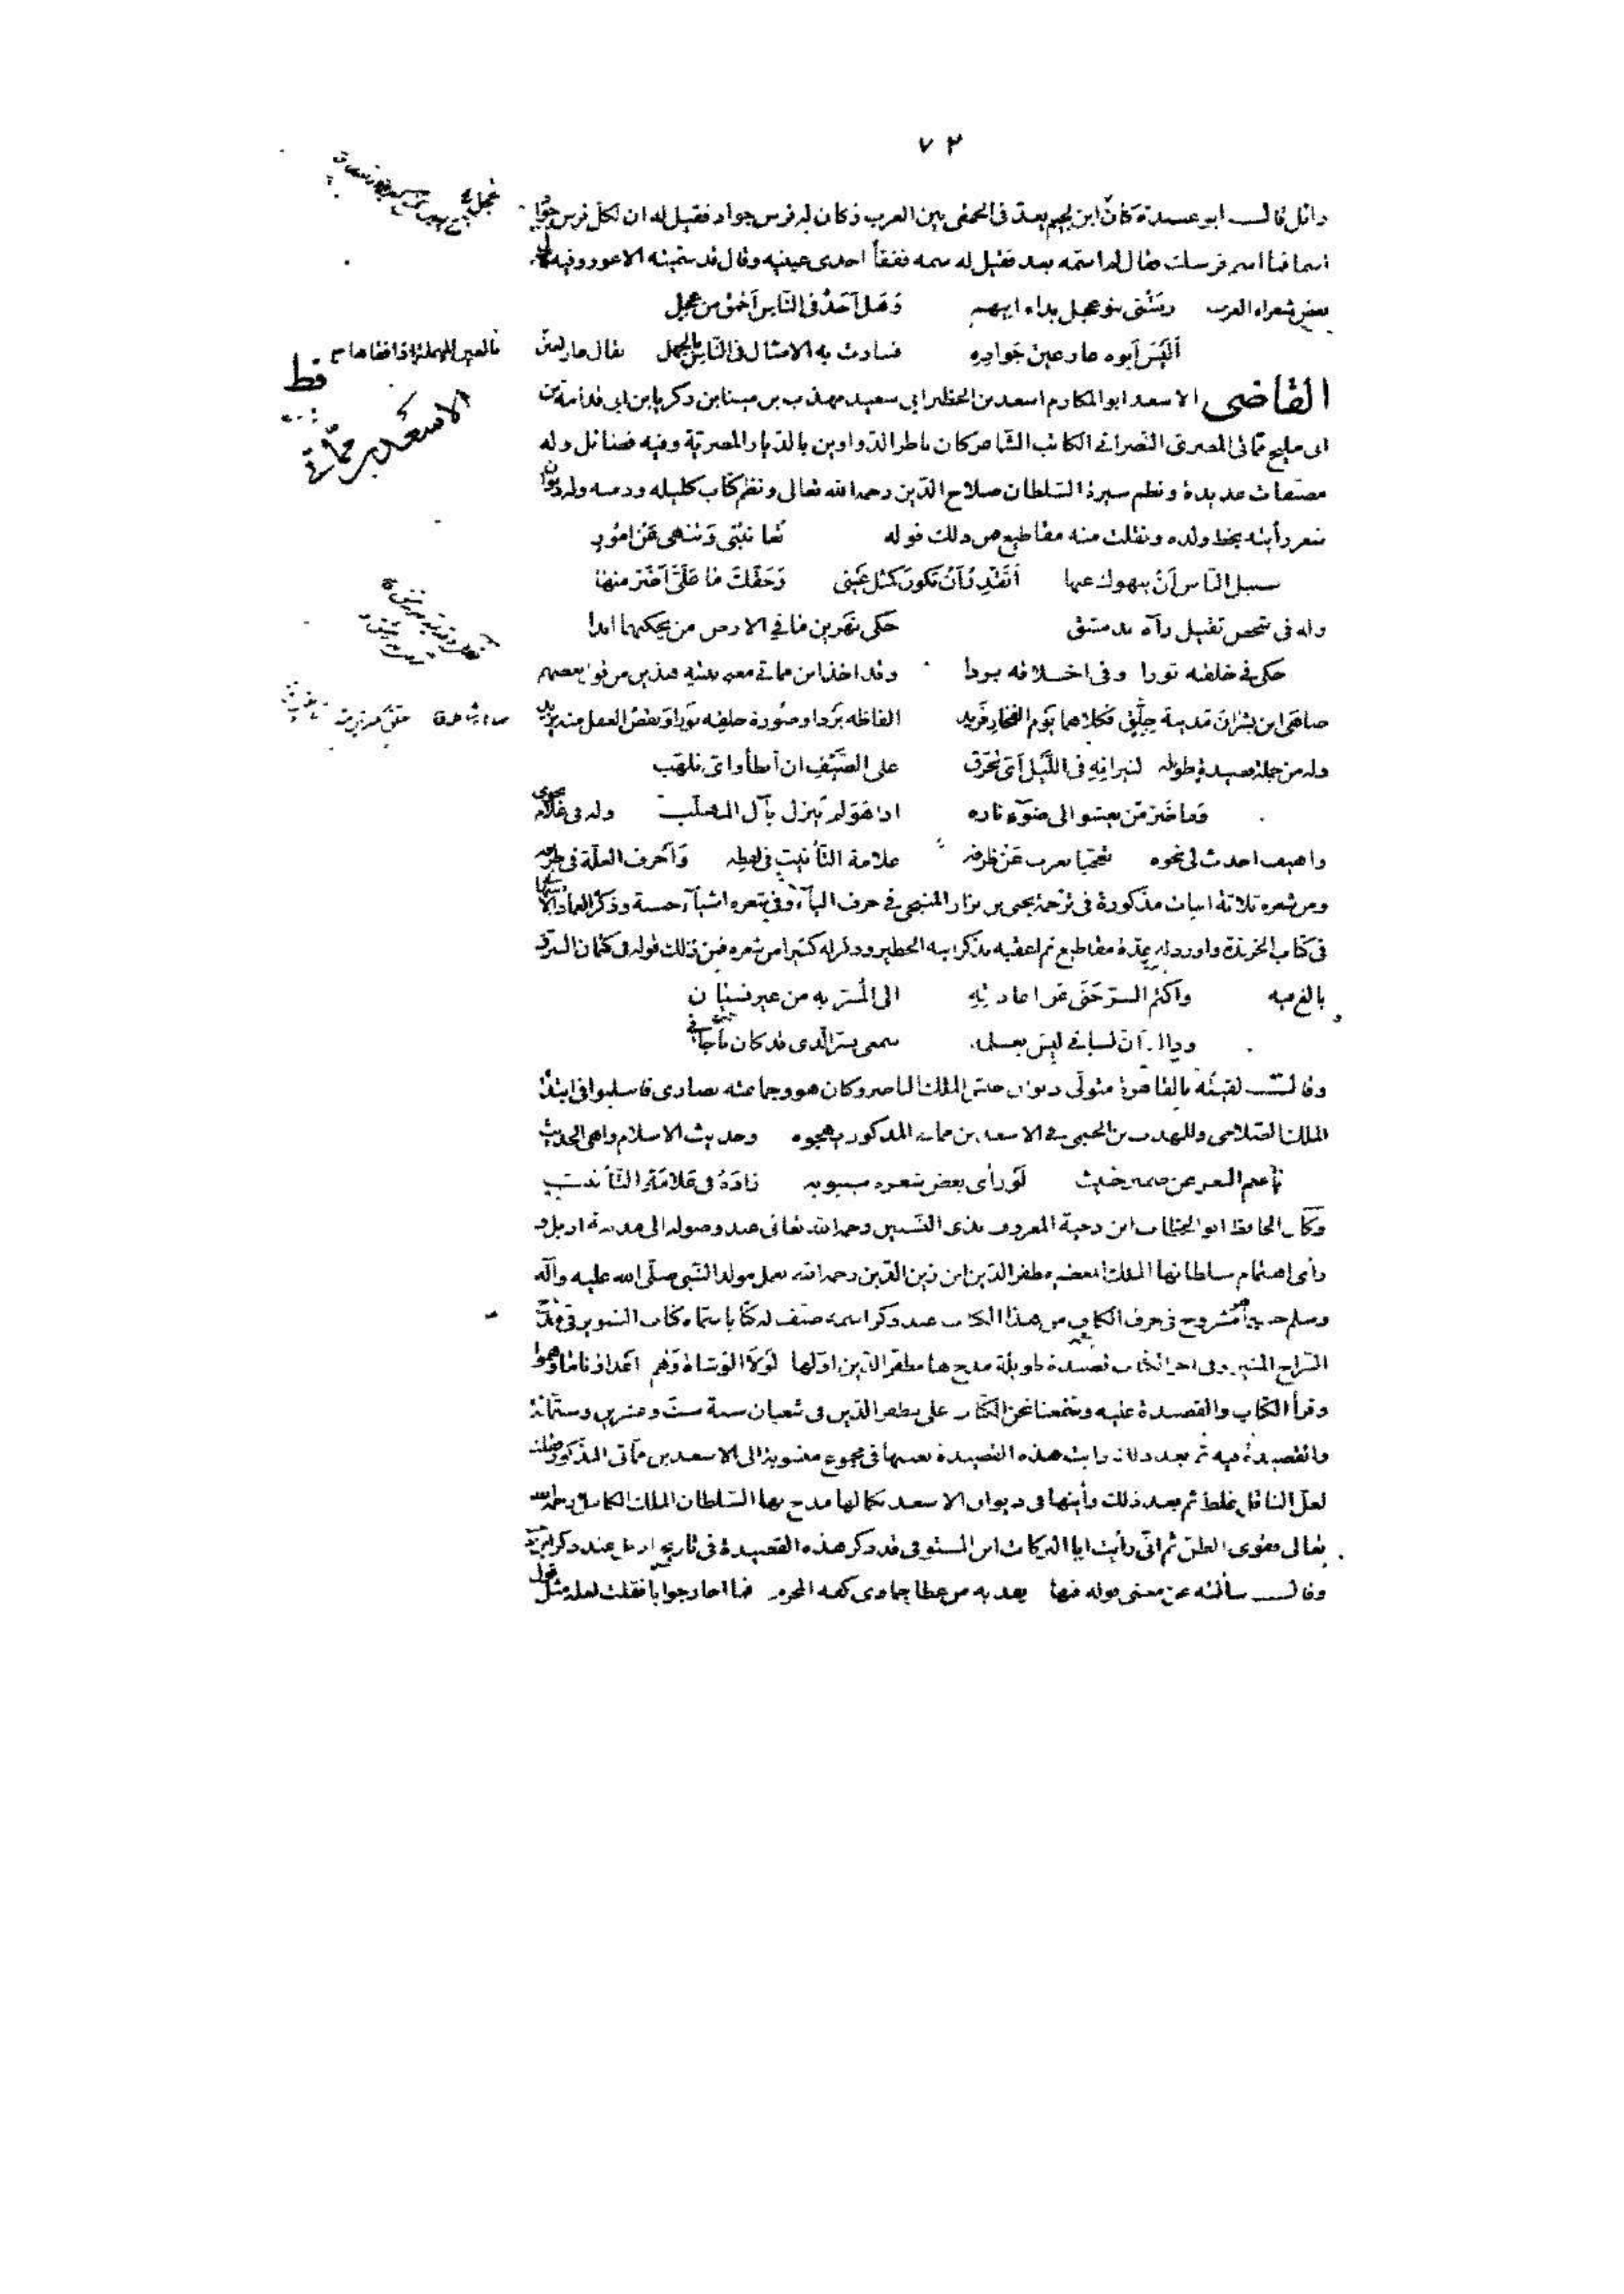 ٧٣
وائل قالـــ ابو عبيدة كان ابن لجيم يعد فى الحمقى بين العرب وكان له فرس جواد فقيل له ان لكل فرس جواد
اسما فما اسم فرسك فقال لم اسمه بعد فقيل له سمه ففقأ احدى عينيه وقال قد سميته الاعور وفيه قال
بعض شعراء العرب رمتنى بنو عجل بداء ابيهم وهل احد فى الناس احمق من عجل
أليس أبوه عار عين جواده فسارت به الامثال فى الناس بالجهل يقال عار العين
بالعين المهملة اذا فقأها
القاضى الاسعد ابو المكارم اسعد بن الخطير ابى سعيد مهذب بن مينا بن زكريا بن ابى قدامة بن
الاسعد بن مماتى
ابى مليح مماتى المصرى النصرانى الكاتب الشاعر كان ناظر الدواوين بالديار المصرية وفيه فضائل وله
مصنفات عديدة ونظم سيرة السلطان صلاح الدين رحمه الله تعالى ونظم كتاب كليله ودمنه وله ديوان
شعر رأيته بخط ولده ونقلت منه مقاطيع من ذلك قوله تعاتبنى وتنهى عن امور
سبيل الناس أن ينهوك عنها أتقدر أن تكون كمثل عينى وحقك ما على أضر منها
وله فى شخص ثقيل رآه بدمشق حكى نهرين ما فى الارض من يحكيهما ابدا
حكى فى خلقه ثورا وفى اخلاقه بردا وقد اخذ ابن مماتى معنى بيتيه هذين من قول بعضهم
ضاهى ابن بشران مدينة جلق فكلاهما يوم الفخار فريد الفاظه بردا وصورة خلقه ثورا ونقص العقل منه يزيد
وله من جملة قصيدة طويلة لنيرانه فى الليل أى تحرق على الضيف ان أبطأ واى تلهب
وما ضر من يعشو الى ضوء ناره اذا هو لم ينزل بآل المهلب وله فى غلام نحوى
واهيف احدث لى نحوه تعجبا يعرب عن ظرفه علامة التأنيث فى لفظه وأحرف العلة فى طرفه
ومن شعره ثلاثة ابيات مذكورة فى ترجمة يحيى بن نزار المنبجى فى حرف الياء وفى شعره اشياء حسنة وذكره العماد الاصبهانى
فى كتاب الخريدة واورد له عدة مقاطيع ثم اعقبه بذكر ابيه الخطير وذكر له كثيرا من شعره فمن ذلك قوله فى كتمان السر
وأكتم السر حتى عن اعادته الى المسر به من غير نسيان
وذاك أن لسانى ليس يعلمه سمعى بسر الذى قد كان ناجانى
وقالـــ لقيته بالقاهرة متولى ديوان جيش الملك الناصر وكان هو وجماعته نصارى فاسلموا فى ابتداء
الملك الصلاحى وللمهذب بن الخيمى فى الاسعد بن مماتى المذكور يهجوه وحديث الاسلام واهى الحديث
باسم الثغر عن ضمير خبيث لو رأى بعض شعره سيبويه زاده فى علامة التأنيث
وكان الحافظ ابو الخطاب ابن دحية المعروف بذى النسبين رحمه الله تعالى عند وصوله الى مدينة اربل و
رأى اهتمام سلطانها الملك المعظم مظفر الدين ابن زين الدين رحمه الله بعمل مولد النبى صلى الله عليه وآله
وسلم حسبما هو مشروح فى حرف الكاف من هذا الكتاب عند ذكر اسمه صنف له كتابا سماه كتاب التنوير فى مولد
السراج المنير وفى اخر الكتاب قصيدة طويلة مدح بها مظفر الدين اولها لولا الوشاة وهم اعداؤنا ما وهموا
وقرأ الكتاب والقصيدة عليه وسمعنا نحن الكتاب على مظفر الدين فى شعبان سنة ست وعشرين وستمائة
والقصيدة فيه ثم بعد ذلك رايت هذه القصيدة بعينها فى مجموع منسوبة الى الاسعد بن مماتى المذكور فقلت
لعل الناقل غلط ثم بعد ذلك رأيتها فى ديوان الاسعد بكمالها مدح بها السلطان الملك الكامل رحمه الله
تعالى فقوى الظن ثم انى رأيت ابا البركات ابن المستوفى قد ذكر هذه القصيدة فى تاريخ اربل عند ذكر ابن دحية
وقالـــ سألته عن معنى قوله فيها يفديه من عطا جمادى كفه المحرم فما احار جوابا فقلت لعله مثل قول